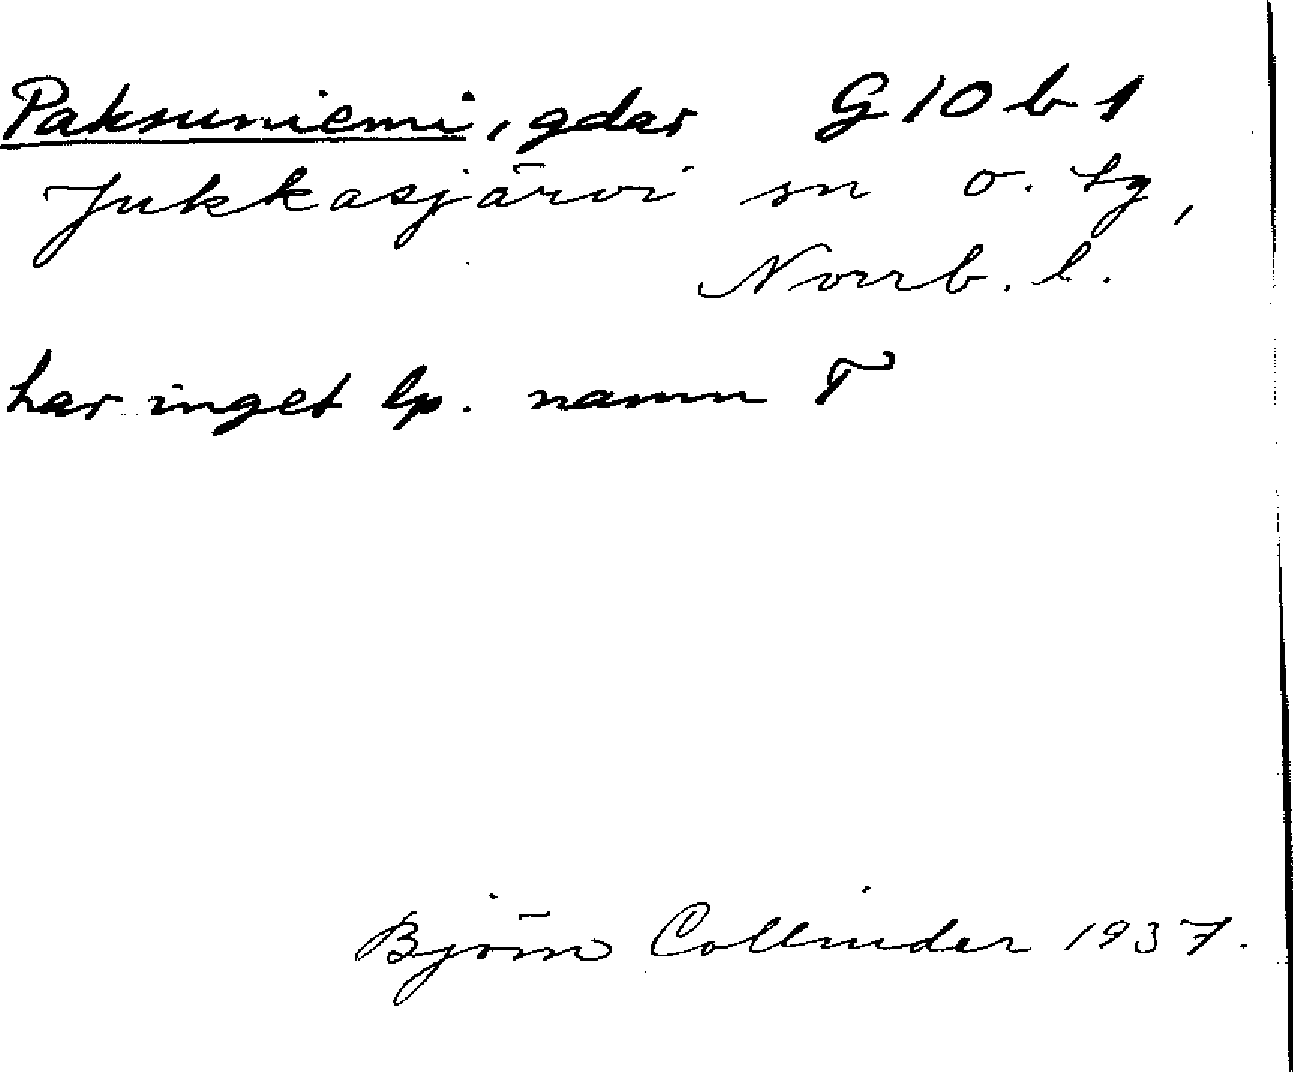 Paksuniemi, gdar G 10 b 1
Jukkasjärvi sn o. tg,
Norrb. l.
har inget lp. namn T
Björn Collinder 1937.